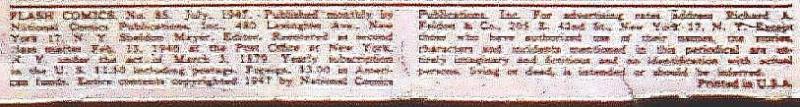 FLASH COMICS, No. 85, July, 1947. Published monthly by
National Comics Publications, Inc., 480 Lexington Ave., New
York 17, N. Y. Sheldon Mayer, Editor. Reentered as second
class matter Feb. 13, 1946 at the Post Office at New York,
N. Y. under the act of March 3, 1879. Yearly subscription
in the U. S. including postage. Foreign, in Ameri-
can funds. Entire contents copyrighted 1947 by National Comics
Publications, Inc. For advertising rates address Richard A.
Feldon & Co., 205 E. 42nd St., New York 17, N. Y. Except
those who have authorized use of their names, the
characters and incidents mentioned in this periodical are en-
tirely imaginary and fictitious and no identification with actual
persons, living or dead, is intended or should be inferred.
Printed in U.S.A.